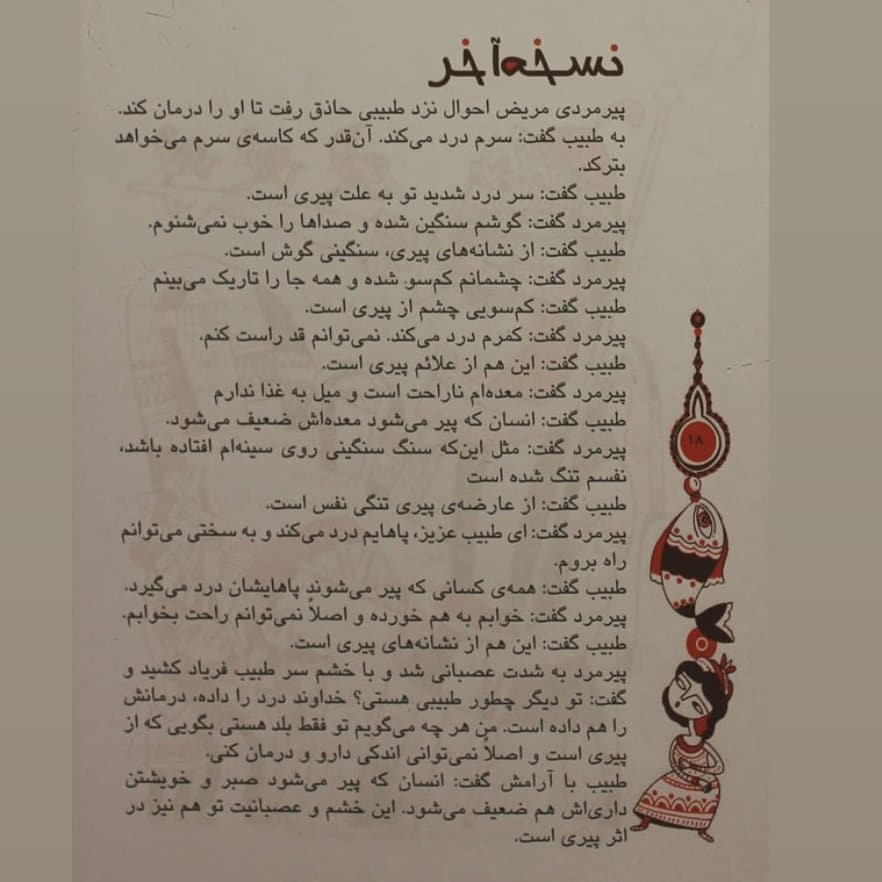 نسخه‌آخر
پیرمردی مریض احوال نزد طبیبی حاذق رفت تا او را درمان کند.
به طبیب گفت: سرم درد می‌کند. آن‌قدر که کاسه‌ی سرم می‌خواهد
بترکد.
طبیب گفت: سر درد شدید تو به علت پیری است.
پیرمرد گفت: گوشم سنگین شده و صداها را خوب نمی‌شنوم.
طبیب گفت: از نشانه‌های پیری، سنگینی گوش است.
پیرمرد گفت: چشمانم کم‌سو شده و همه جا را تاریک می‌بینم
طبیب گفت: کم‌سویی چشم از پیری است.
پیرمرد گفت: کمرم درد می‌کند. نمی‌توانم قد راست کنم.
طبیب گفت: این هم از علائم پیری است.
پیرمرد گفت: معده‌ام ناراحت است و میل به غذا ندارم
طبیب گفت: انسان که پیر می‌شود معده‌اش ضعیف می‌شود.
پیرمرد گفت: مثل این‌که سنگ سنگینی روی سینه‌ام افتاده باشد،
نفسم تنگ شده است
طبیب گفت: از عارضه‌ی پیری تنگی نفس است.
پیرمرد گفت: ای طبیب عزیز، پاهایم درد می‌کند و به سختی می‌توانم
راه بروم.
طبیب گفت: همه‌ی کسانی که پیر می‌شوند پاهایشان درد می‌گیرد.
پیرمرد گفت: خوابم به هم خورده و اصلاً نمی‌توانم راحت بخوابم.
طبیب گفت: این هم از نشانه‌های پیری است.
پیرمرد به شدت عصبانی شد و با خشم سر طبیب فریاد کشید و
گفت: تو دیگر چطور طبیبی هستی؟ خداوند درد را داده، درمانش
را هم داده است. من هر چه می‌گویم تو فقط بلد هستی بگویی که از
پیری است و اصلاً نمی‌توانی اندکی دارو و درمان کنی.
طبیب با آرامش گفت: انسان که پیر می‌شود صبر و خویشتن
داری‌اش هم ضعیف می‌شود. این خشم و عصبانیت تو هم نیز در
اثر پیری است.
۱۸